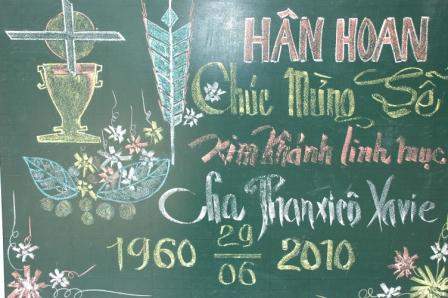 HÂN HOAN
Chúc Mừng Số
Kim Khánh linh mục
Cha Phanxicô Xavie
1960 29/06 2010